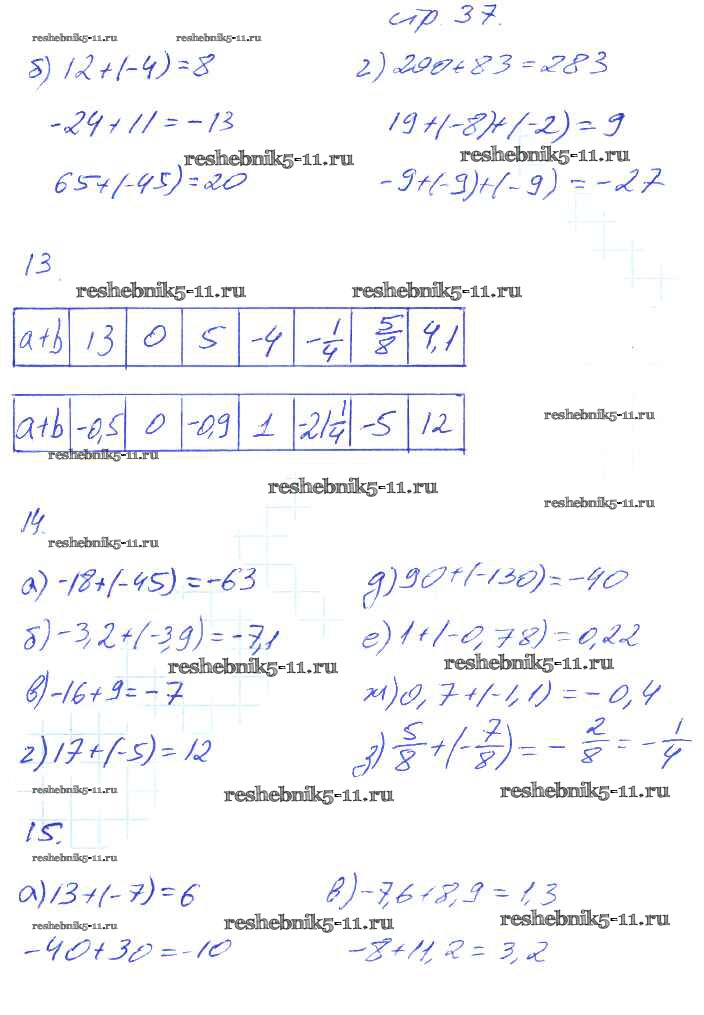 стр. 37.
reshebnik5-11.ru reshebnik5-11.ru
б) 12+(-4)=8 г) 200+83=283
-24+11=-13 19+(-8)+(-2)=9
reshebnik5-11.ru reshebnik5-11.ru
65+(-45)=20 -9+(-9)+(-9)=-27
13
reshebnik5-11.ru reshebnik5-11.ru
a+b 13 0 5 -4 -1/4 5/8 4,1
reshebnik5-11.ru
a+b -0,5 0 -0,9 1 -21 1/4 -5 12
reshebnik5-11.ru
reshebnik5-11.ru
reshebnik5-11.ru
14.
reshebnik5-11.ru
а) -18+(-45)=-63 д) 90+(-130)=-40
б) -3,2+(-3,9)=-7,1 е) 1+(-0,78)=0,22
reshebnik5-11.ru reshebnik5-11.ru
в) -16+9=-7 ж) 0,7+(-1,1)=-0,4
г) 17+(-5)=12 з) 5/8+(-7/8)=-2/8=-1/4
reshebnik5-11.ru reshebnik5-11.ru reshebnik5-11.ru
15.
reshebnik5-11.ru
а) 13+(-7)=6 в) -7,6+8,9=1,3
reshebnik5-11.ru reshebnik5-11.ru reshebnik5-11.ru
-40+30=-10 -8+11,2=3,2